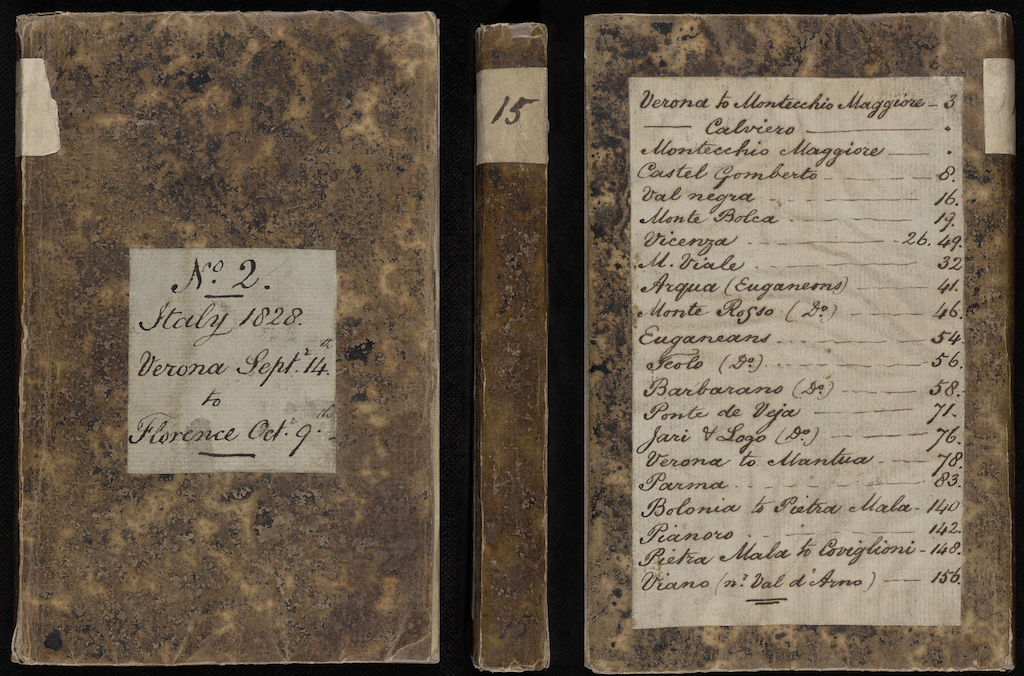 No. 2.
Italy 1828.
Verona Septr. 14th.
to
Florence Octr. 9th.
15
15
Verona to Montecchio Maggiore - 3
—— Calviero —— "
Montecchio Maggiore —— "
Castel Gomberto - - - 8.
Val negra - - - 16.
Monte Bolca - - - 19.
Vicenza - - - 26. 49.
M. Viale - - - 32
Arqua (Euganeons) - - - 41.
Monte Rosso (Do.) - - - 46.
Euganeans - - - 54.
Teolo (Do.) - - - 56.
Barbarano (Do.) - - - 58.
Ponte de Veja - - - 71.
Jari & Logo (Do.) - - - 76.
Verona to Mantua - - - 78.
Parma - - - 83.
Bolonia to Pietra Mala - 140
Pianoro - - - 142.
Pietra Mala to Coviglioni - 148.
Viano (nr. Val d'Arno) - - - 156.